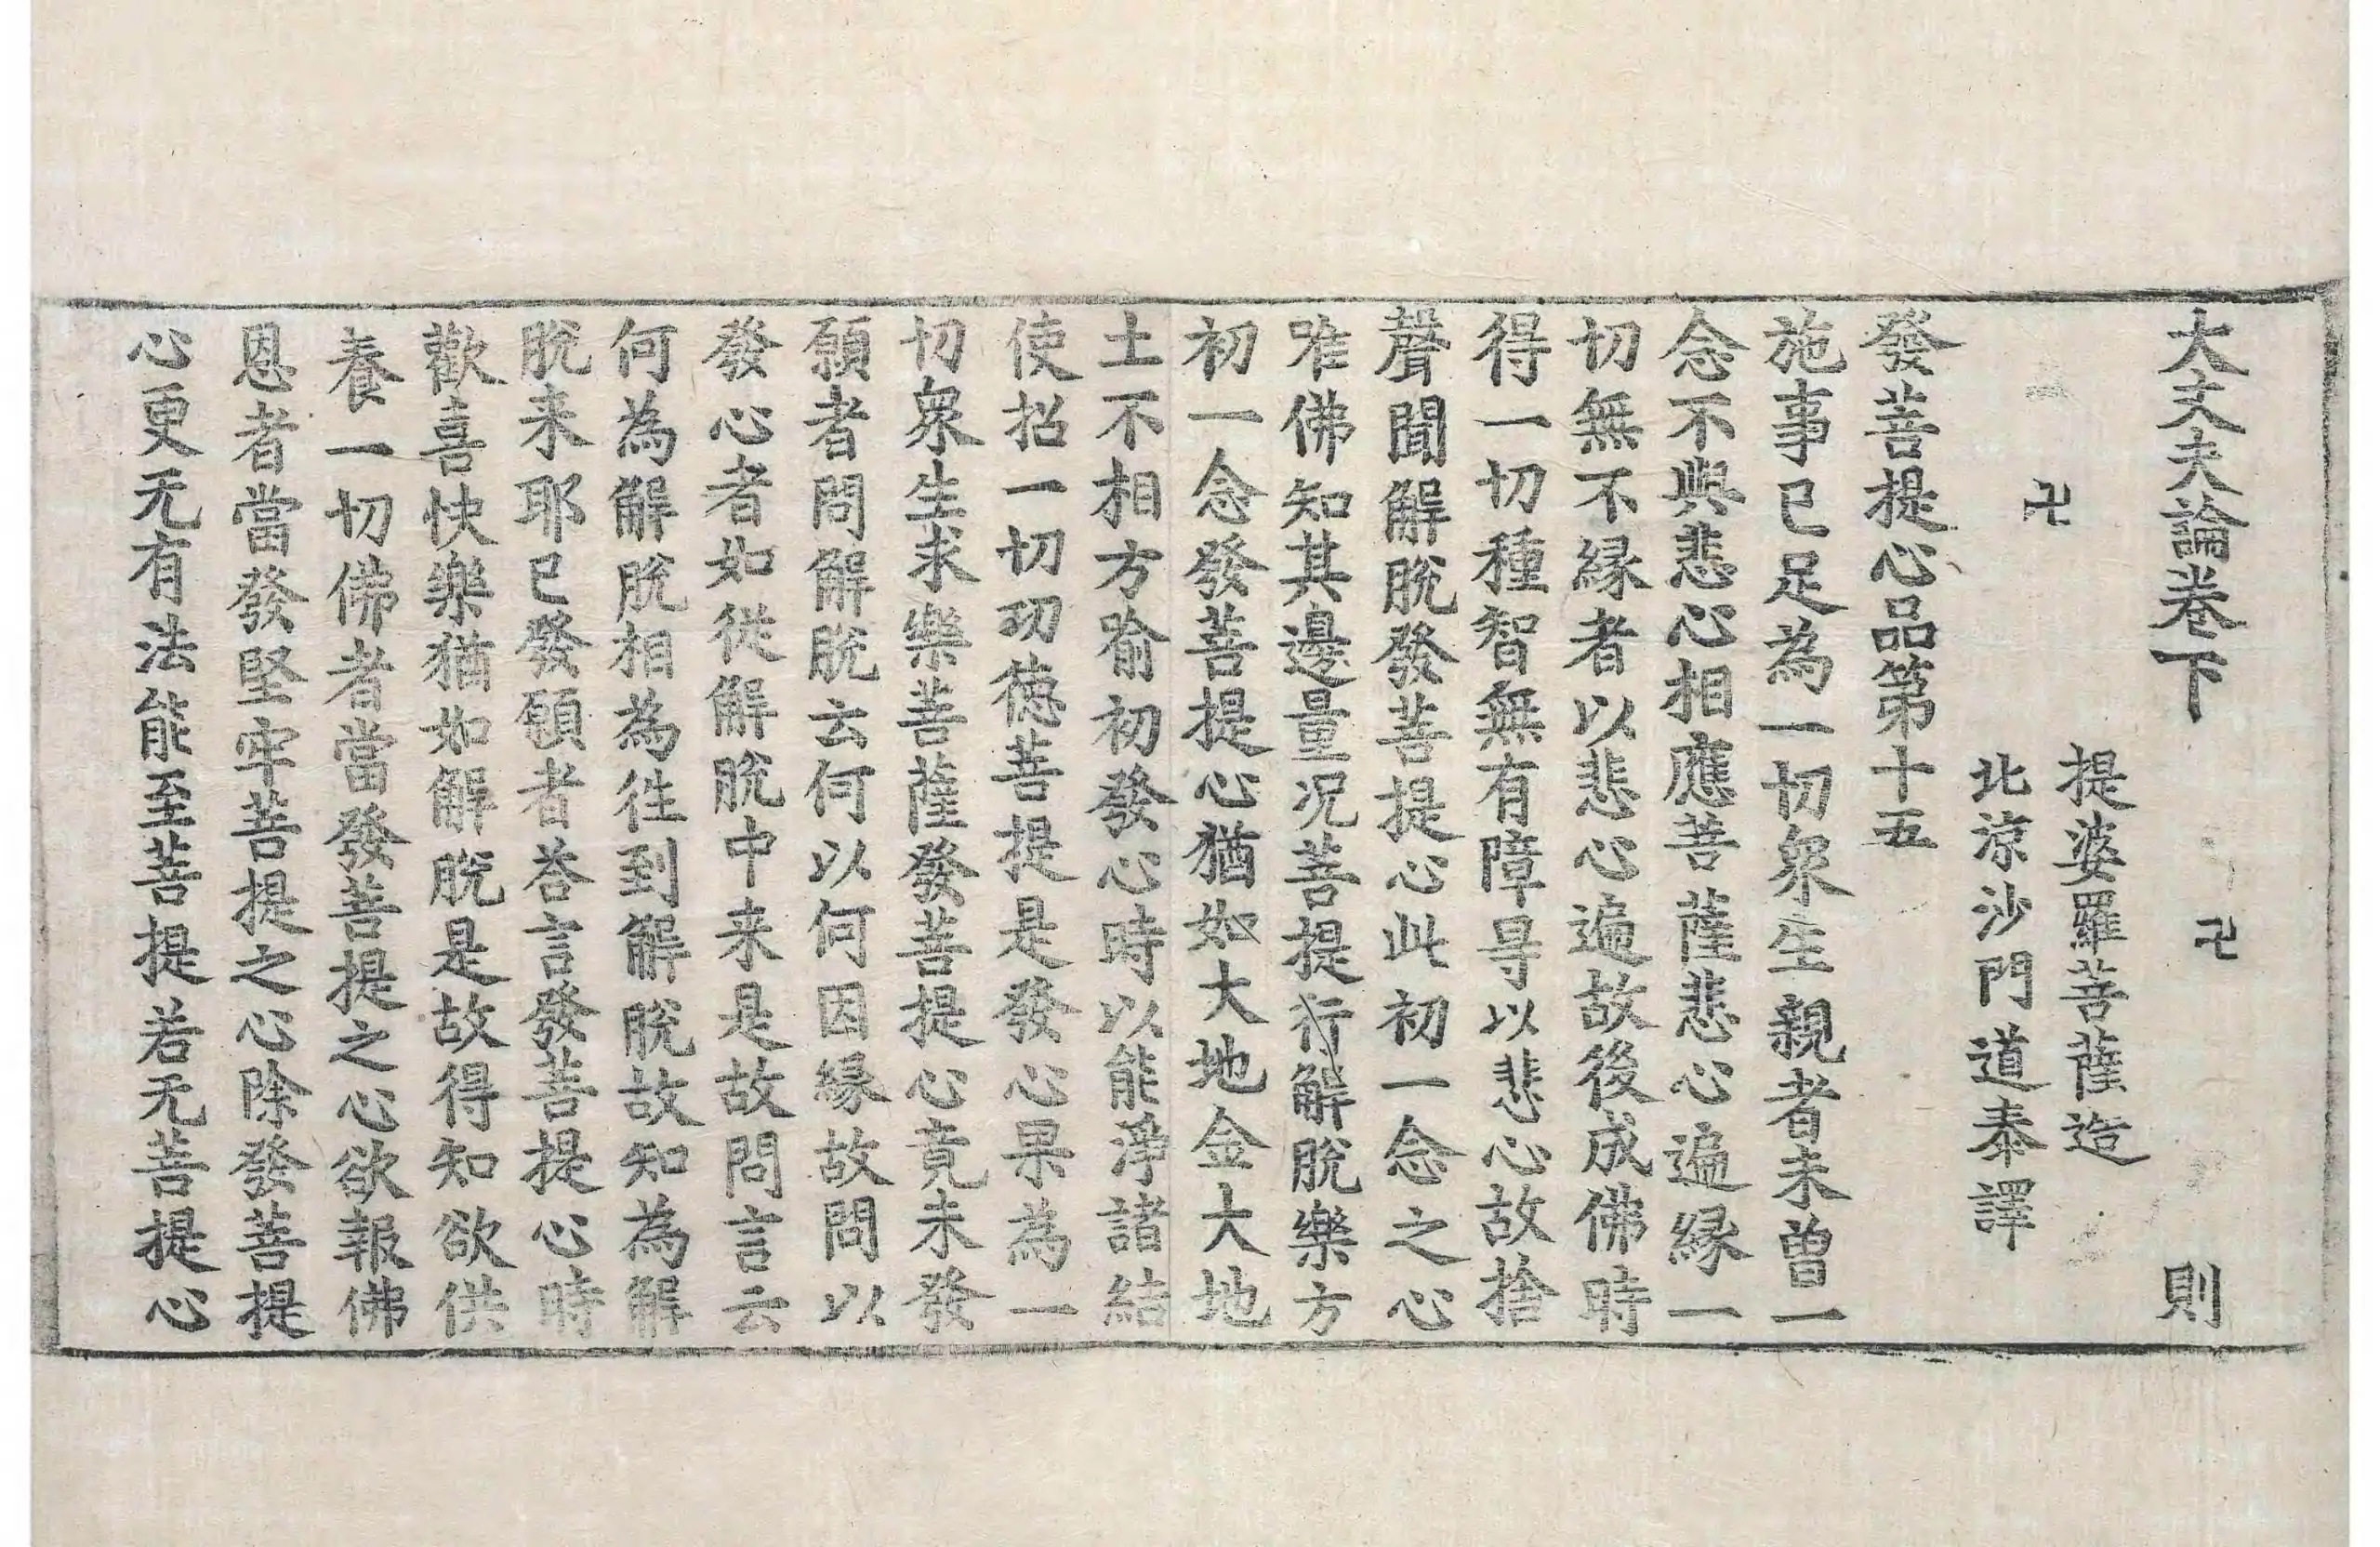 大丈夫論卷下 卍 則
提婆羅菩薩造
卍
北涼沙門道泰譯
發菩提心品第十五
施事已足為一切衆生親者未曽一
念不與悲心相應菩薩悲心遍緣一
切無不縁者以悲心遍故後成佛時
得一切種智無有障㝵以悲心故捨
聲聞解脫發菩提心此初一念之心
唯佛知其邊量况菩提行解脫樂方
初一念發菩提心猶如大地金大地
土不相方喻初發心時以能淨諸結
使招一切功德菩提是發心果為一
切衆生求樂菩薩發菩提心竟未發
願者問解脫云何以何因緣故問以
發心者如從解脫中来是故問言云
何為解脫相為徃到解脫故知為解
脫来耶已發願者荅言發菩提心時
歡喜快樂猶如解脫是故得知欲供
養一切佛者當發菩提之心欲報佛
恩者當發堅牢菩提之心除發菩提
心更无有法能至菩提若无菩提心